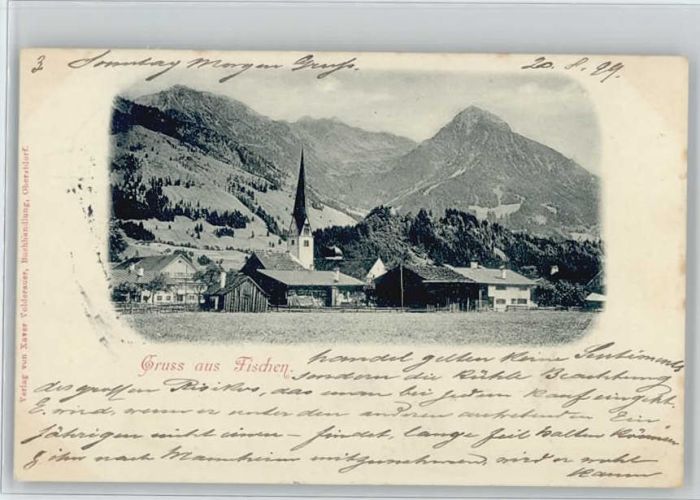 3
Sonntag Morgen Gruss.
20. 8. 99.
Verlag von Xaver Volderauer, Buchhandlung, Oberstdorf.
Gruss aus Fischen.
handel gelten keine Sentiments
sondern die kühle Beachtung
des großen Risikos, das man bei jedem Kauf eingeht.
E. wird, wenn er unter den anderen Ein-
jährigen nicht einen – findet, lange Zeit halten können
ihn nach Mannheim mitzunehmen, wird er wohl
kaum